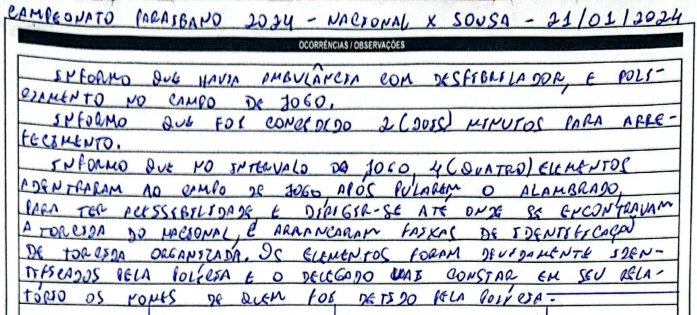 CAMPEONATO PARAIBANO 2024 - NACIONAL X SOUSA - 21/01/2024
OCORRÊNCIAS / OBSERVAÇÕES
INFORMO QUE HAVIA AMBULÂNCIA COM DESFIBRILADOR, E POLI-
CIAMENTO NO CAMPO DE JOGO.
INFORMO QUE FOI CONCEDIDO 2 (DOIS) MINUTOS PARA ARRE-
FECIMENTO.
INFORMO QUE NO INTERVALO DO JOGO, 4 (QUATRO) ELEMENTOS
ADENTRARAM AO CAMPO DE JOGO APÓS PULAREM O ALAMBRADO,
PARA TER ACESSIBILIDADE E DIRIGIR-SE ATÉ ONDE SE ENCONTRAVAM
A TORCIDA DO NACIONAL, E ARRANCARAM FAIXAS DE IDENTIFICAÇÃO
DE TORCIDA ORGANIZADA. OS ELEMENTOS FORAM DEVIDAMENTE IDEN-
TIFICADOS PELA POLÍCIA E O DELEGADO VAI CONSTAR EM SEU RELA-
TÓRIO OS NOMES DE QUEM FOI DETIDO PELA POLÍCIA -